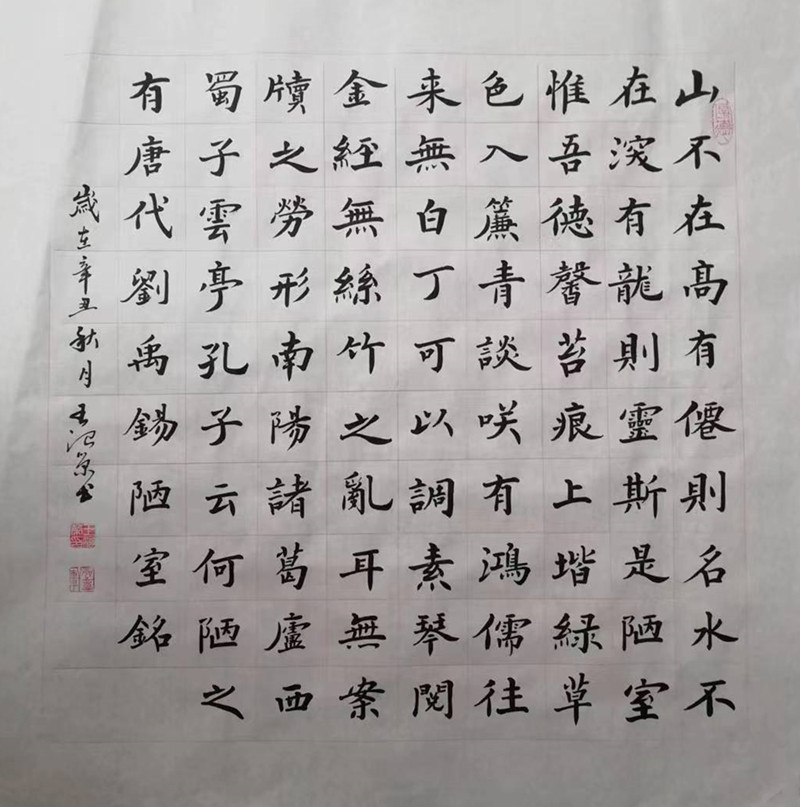 山不在高有僊則名水不
在深有龍則靈斯是陋室
惟吾德馨苔痕上堦綠草
色入簾青談咲有鴻儒往
来無白丁可以調素琴閱
金經無絲竹之亂耳無案
牘之勞形南陽諸葛廬西
蜀子雲亭孔子云何陋之
有唐代劉禹錫陋室銘
歲在辛丑秋月王景书